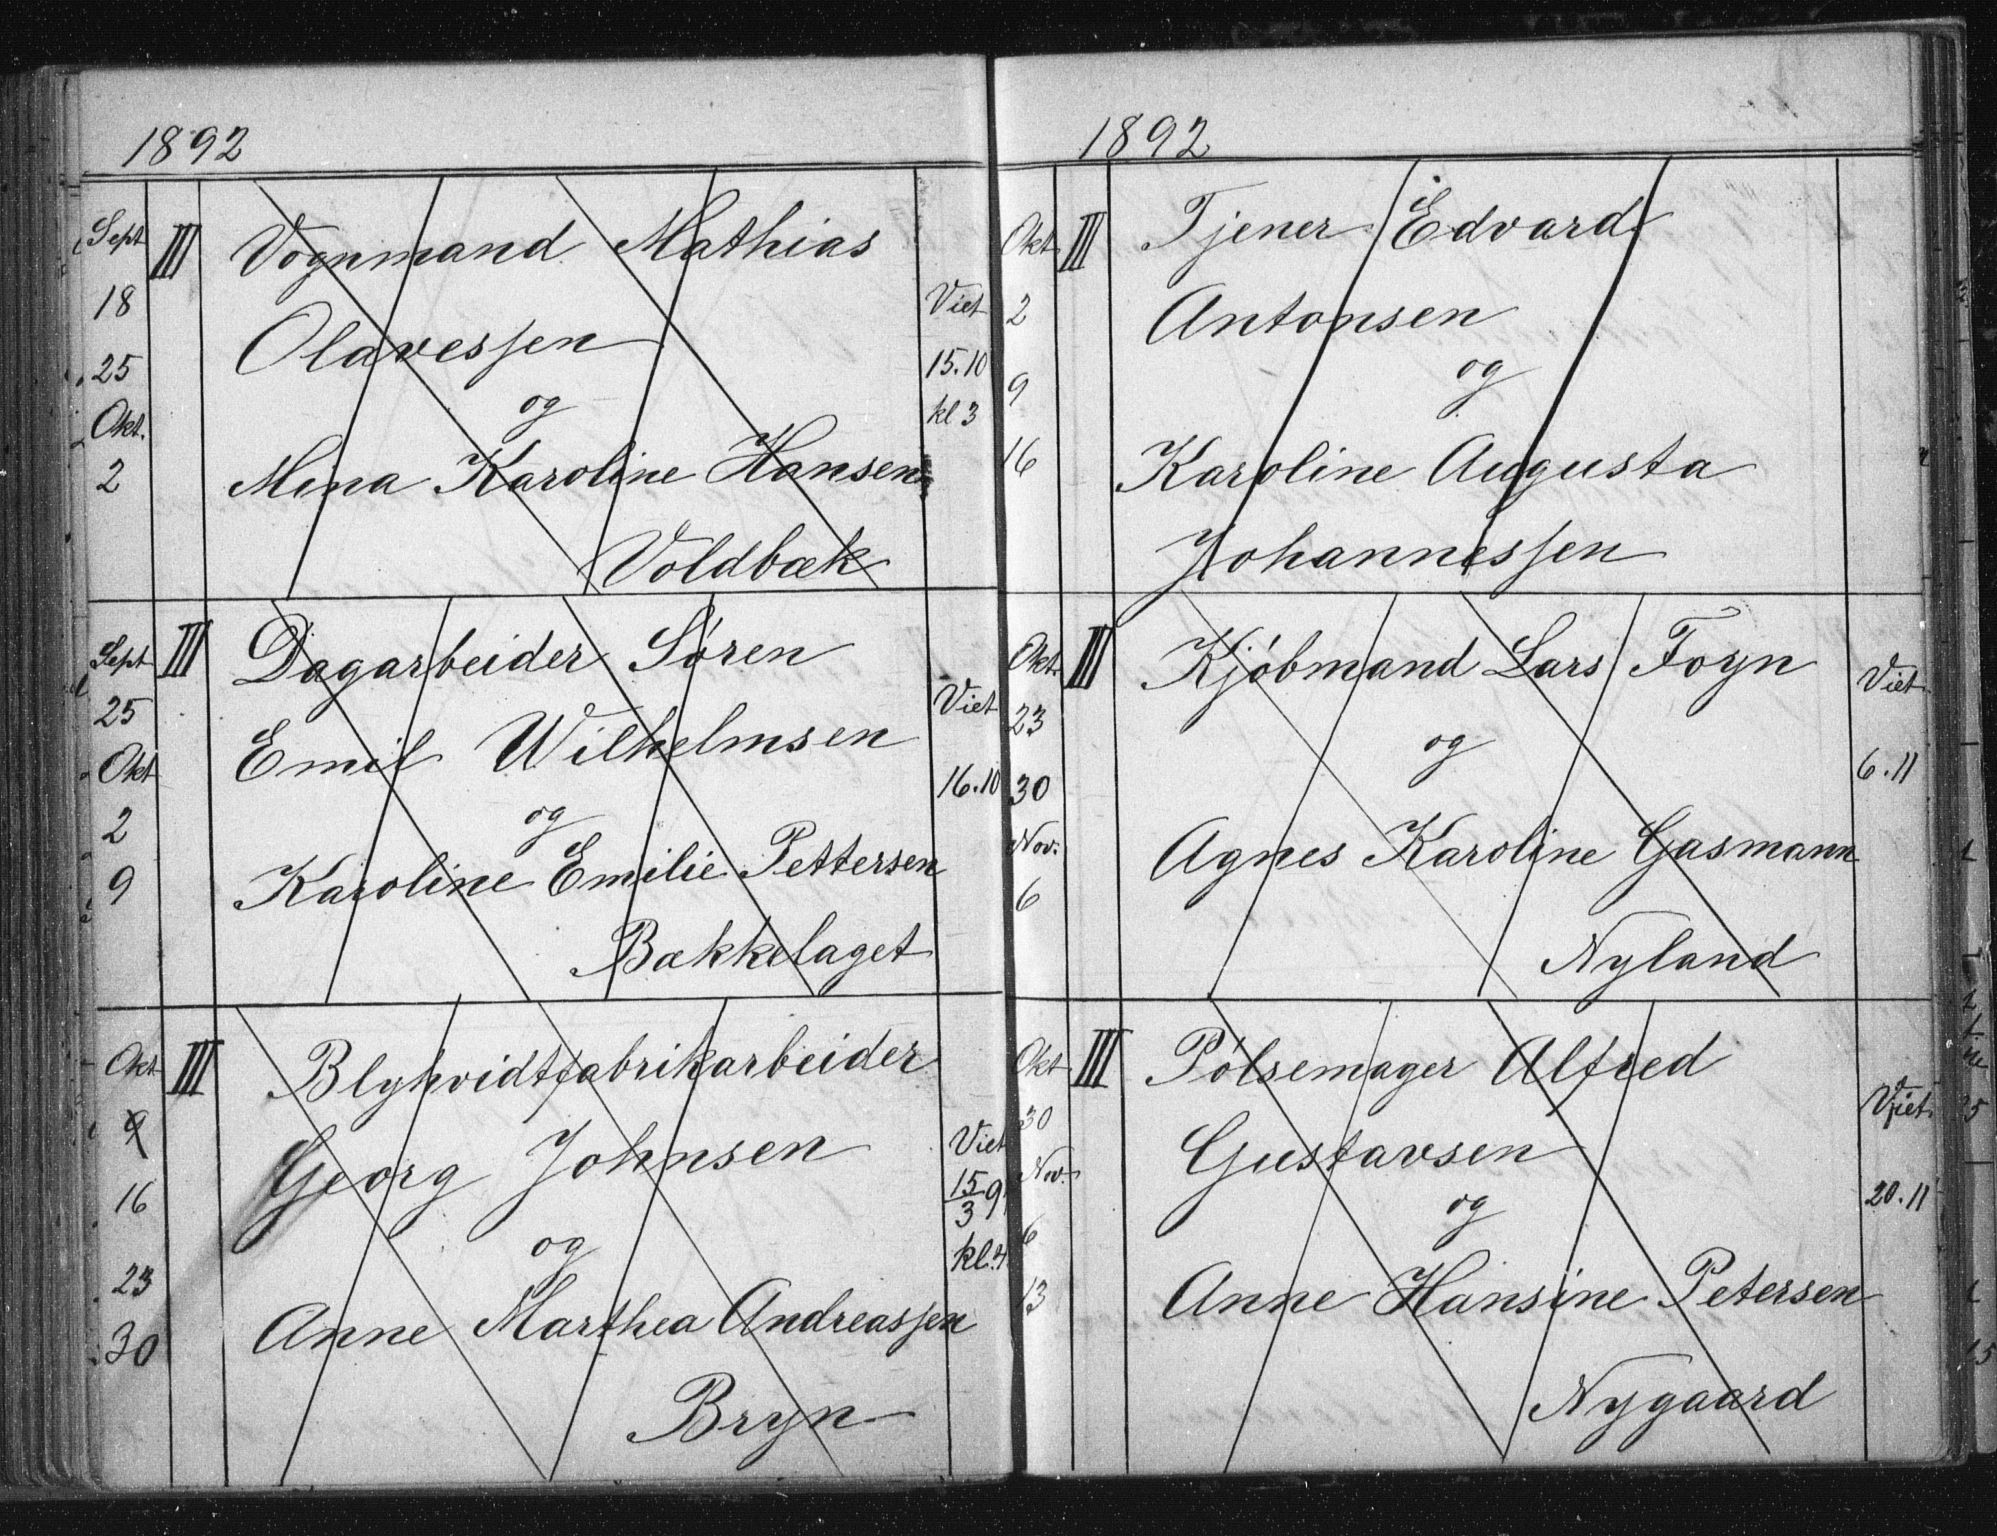 1892
Sept
18
25
Okt.
2
III
Vognmand Mathias
Olavessen
og
Mina Karoline Hansen
Voldbæk
Viet
15.10
kl 3
Sept
25
Okt
2
9
III
Dagarbeider Søren
Emil Wilhelmsen
og
Karoline Emilie Pettersen
Bækkelaget
Viet
16.10
Okt
9
16
23
30
III
Blyhvidtfabrikarbeider
Georg Johnsen
og
Anne Marthea Andreassen
Bryn
Viet
15/3 9
kl.4.
1892
Okt
2
9
16
III
Tjener Edvard
Antonsen
og
Karoline Augusta
Johannessen
Okt.
23
30
Nov.
6
III
Kjøbmand Lars Foyn
og
Agnes Karoline Gasmann
Nyland
Viet
6.11
Okt
30
Nov.
6
13
III
Pølsemager Alfred
Gustavsen
og
Anne Hansine Petersen
Nygaard
Viet.
20.11